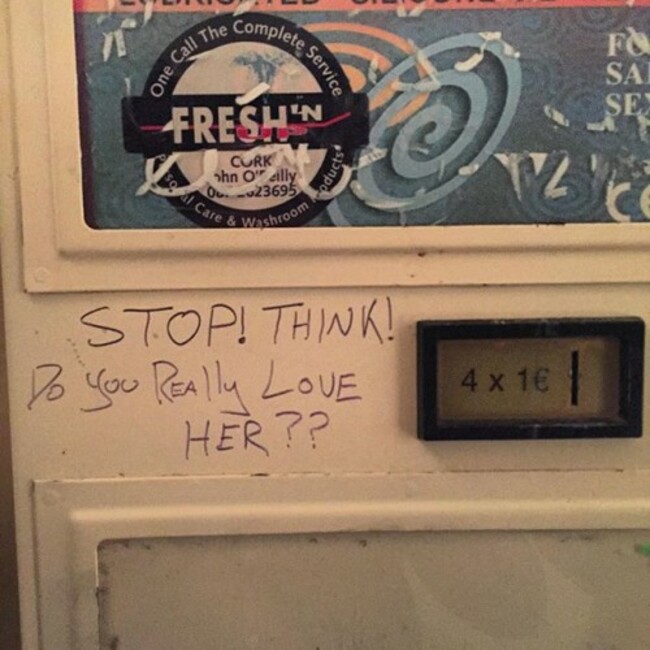 One Call The Complete Service
FRESH 'N
CORK
John O'Reilly
Personal Care & Washroom Products
FO
SA
SEX
STOP! THINK!
Do You Really LOVE
HER??
4 x 1€